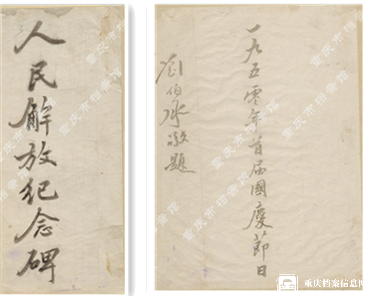 人民解放纪念碑
一九五零年首届國慶節日
劉伯承敬題
重庆市档案馆
重庆档案信息网